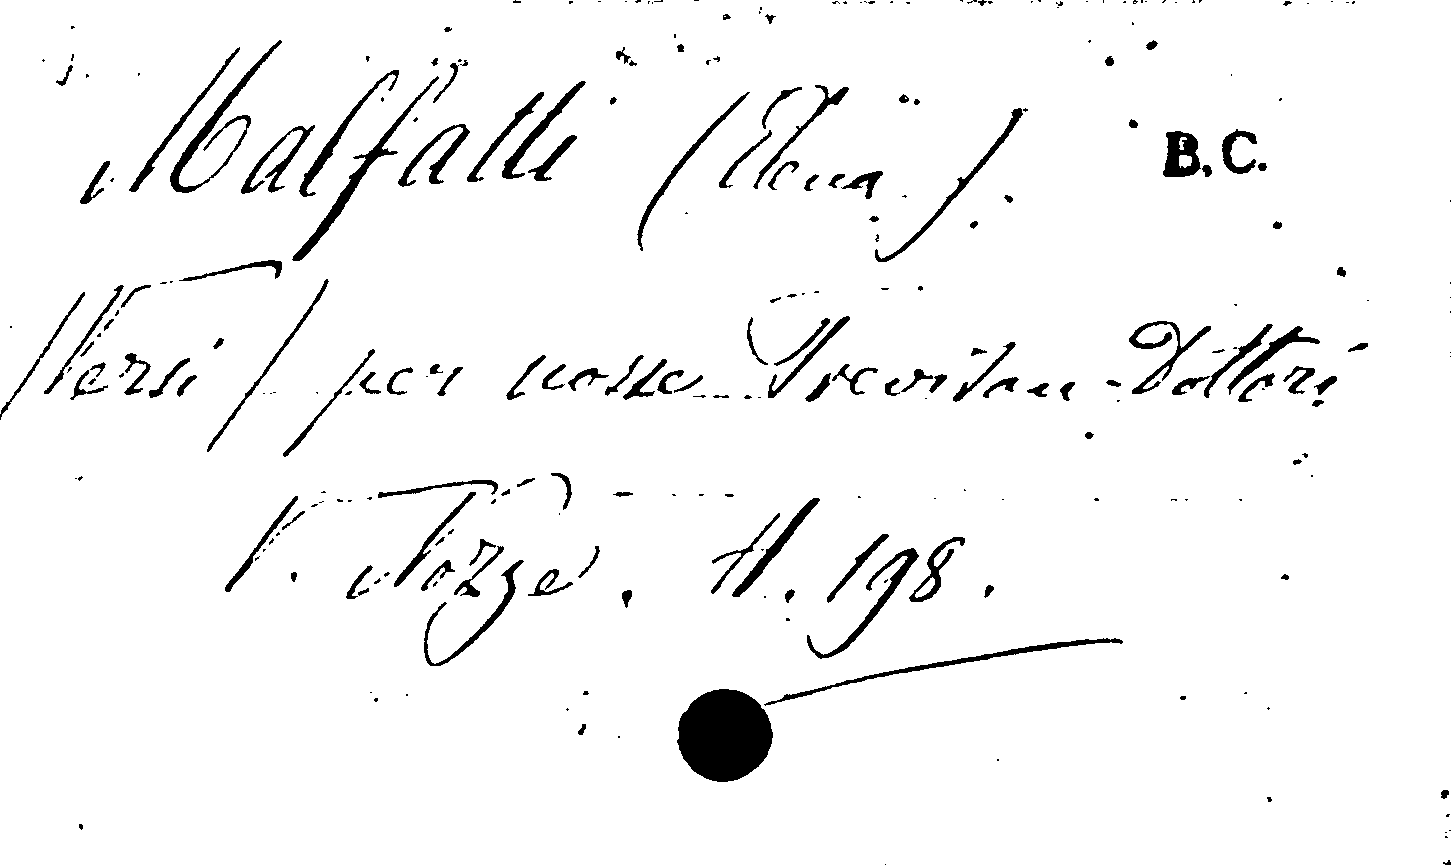 Malfatti (Elena). B.C.
/Versi/ per nozze Trevisan-Dottori
V. Nozze. A. 198.